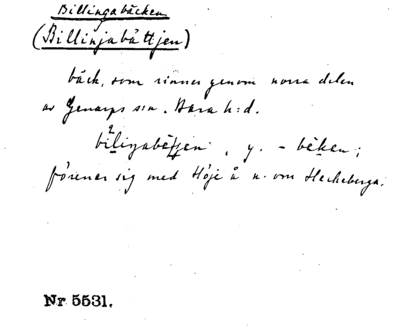 Billingabäcken
(Billinjabåttjen)
bäck, som rinner genom norra delen
av Genarps s:n. Bara h:d.
y. - bẹken;
förenar sig med Höje å n. om Häckeberga.
Nr 5531.